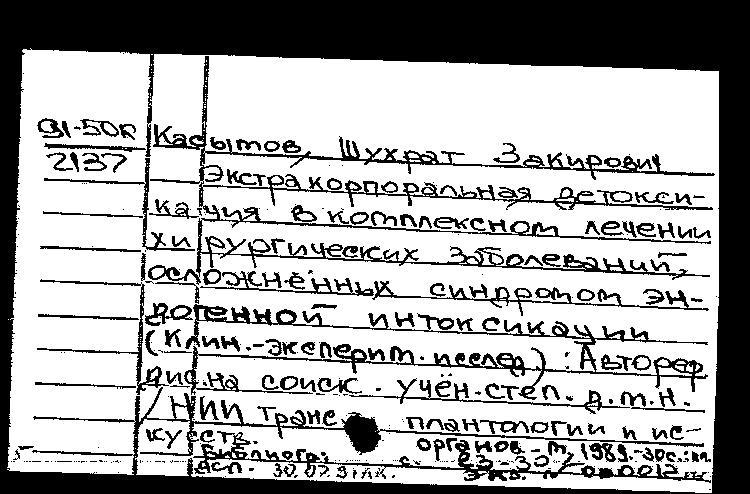 91-50к
2137
Касымов, Шухрат Закирович
Экстракорпоральная детокси-
кация в комплексном лечении
хирургических заболеваний,
осложнённых синдромом эн-
догенной интоксикации
(Клин.-эксперим. исслед.) : Автореф
дис. на соиск. учён. степ. д.м.н.
/ НИИ транс плантологии и ис-
кусств. органов.-М, 1989.-30с.:ил.
Библиогр.: с. 23-30